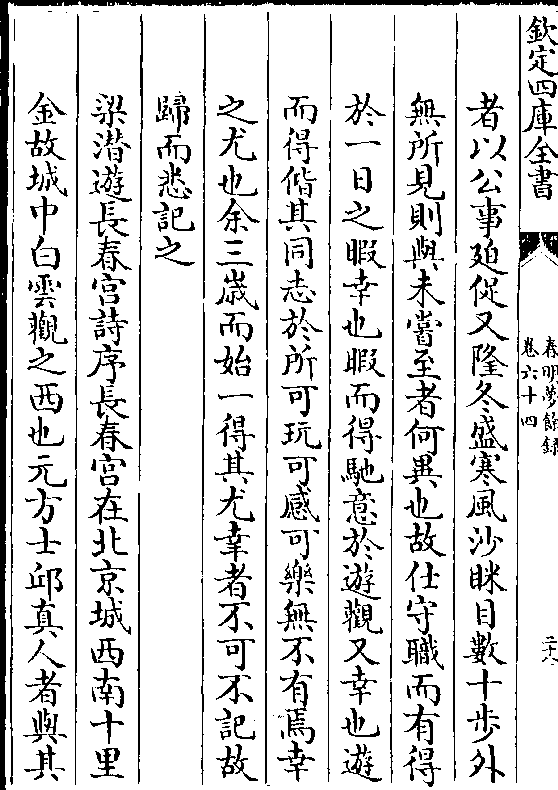 欽定四庫全書
春明夢餘錄
卷六十四
二十六
者以公事廹促又隆冬盛寒風沙眯目數十步外
無所見則與未嘗至者何異也故仕守職而有得
於一日之暇幸也暇而得馳意於遊觀又幸也遊
而得偕其同志於所可玩可感可樂無不有焉幸
之尤也余三歲而始一得其尤幸者不可不記故
歸而悉記之
梁潜遊長春宮詩序長春宮在北京城西南十里
金故城中白雲觀之西也元方士邱真人者與其